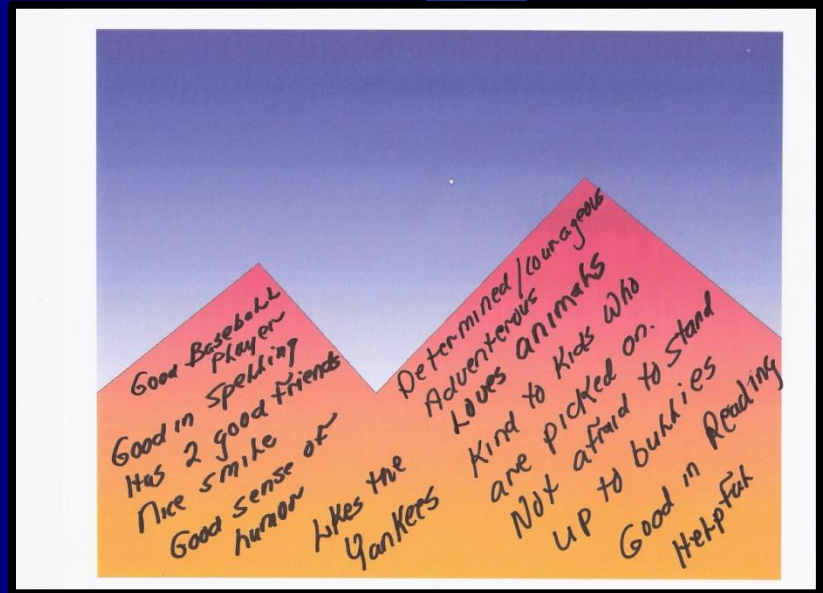 Good Baseball
Player
Good in Spelling
Has 2 good Friends
Nice smile
Good sense of
humor
Likes the
Yankees
Determined/Courageous
Adventerous
Loves animals
Kind to Kids Who
are picked on.
Not afraid to Stand
up to bullies
Good in Reading
Helpful